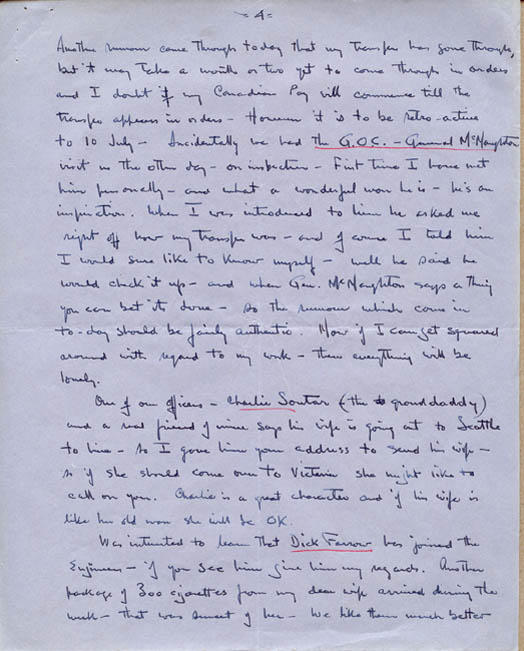 - 4 -
Another rumour came through today that my transfer has gone through,
but it may take a month or two yet to come through in orders
and I doubt if my Canadian Pay will commence till the
transfer appears in orders - However it is to be retro-active
to 10 July - Incidentally we had the G.O.C. - General McNaughton
visit us the other day - on inspection - First time I have met
him personally - and what a wonderful man he is - he's an
inspiration. When I was introduced to him he asked me
right off how my transfer was - and of course I told him
I would sure like to know myself - well he said he
would check it up - and when Gen. McNaughton says a thing
you can bet it's done - so the rumour which came in
to-day should be fairly authentic. Now if I can get squared
around with regard to my work - then everything will be
lovely.
One of our officers - Charlie Soutar (the granddaddy)
and a real friend of mine says his wife is going out to Seattle
to live - so I gave him your address to send his wife -
so if she should come over to Victoria she might like to
call on you. Charlie is a great character and if his wife is
like her old man she will be OK.
Was interested to learn that Dick Farrow has joined the
Engineers - if you see him give him my regards. Another
package of 300 cigarettes from my dear wife arrived during the
week - that was sweet of her - We like them much better